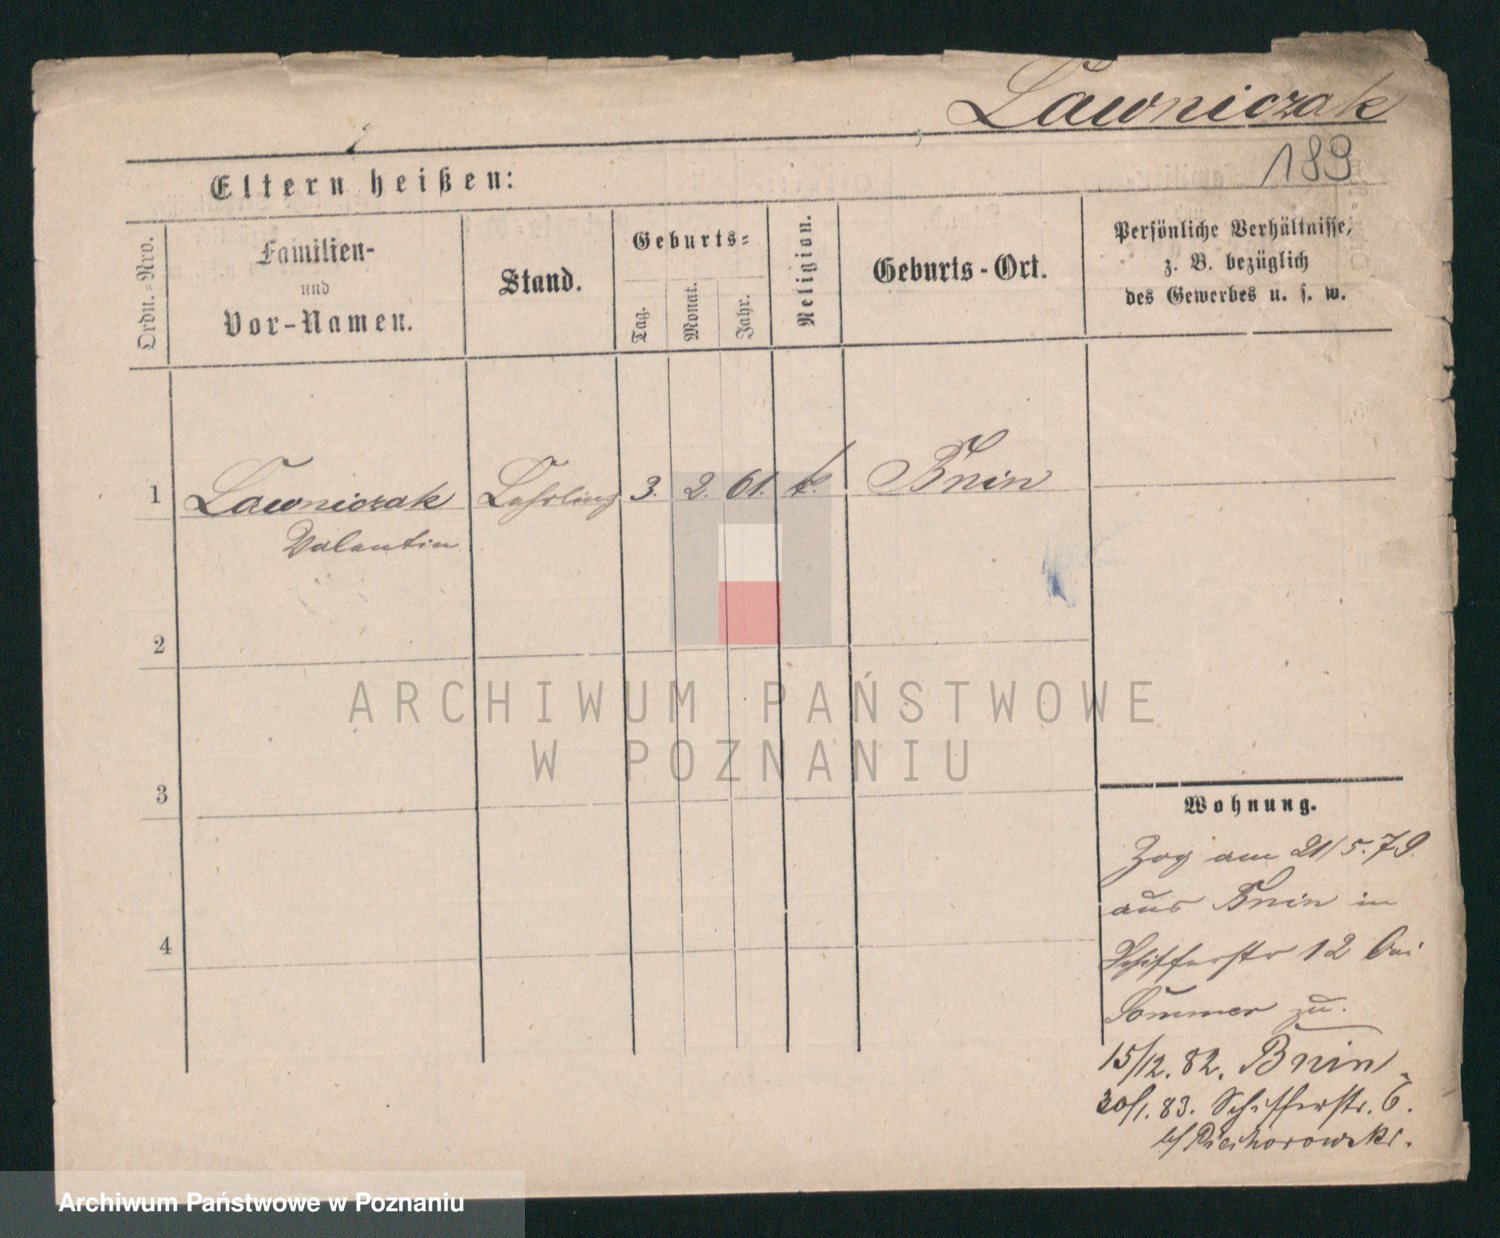 Lawniczak
189
Eltern heißen:
Ordn.-Nro.
Familien-
und
Vor-Namen.
Stand.
Geburts-
Tag.
Monat.
Jahr.
Religion.
Geburts-Ort.
Persönliche Verhältnisse,
z. B. bezüglich
des Gewerbes u. s. w.
1 Lawniczak Lehrling 3. 2. 61. k. Bnin
Valentin
2
3
4
ARCHIWUM PAŃSTWOWE
W POZNANIU
Wohnung.
Zog am 21/5.79.
aus Bnin in
Schifferstr 12 bei
Sommer zu.
15/12.82. Bnin.
30/1.83. Schifferstr. 6.
b/ Piechorowski.
Archiwum Państwowe w Poznaniu